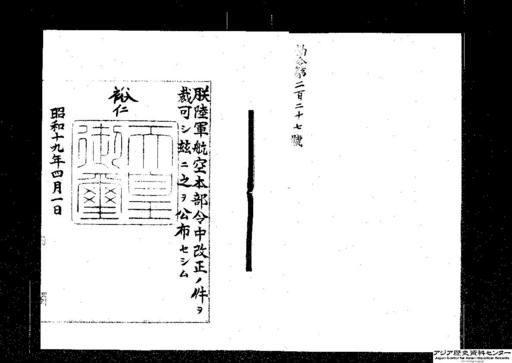 勅令第二百二十七號
朕陸軍航空本部令中改正ノ件ヲ
裁可シ茲ニ之ヲ公布セシム
裕仁
天皇
御璽
昭和十九年四月一日
アジア歴史資料センター
Japan Center for Asian Historical Records